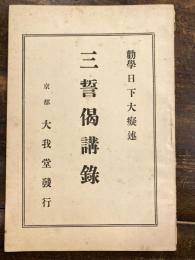 勸學日下大癡述
三誓偈講錄
京都 大我堂發行